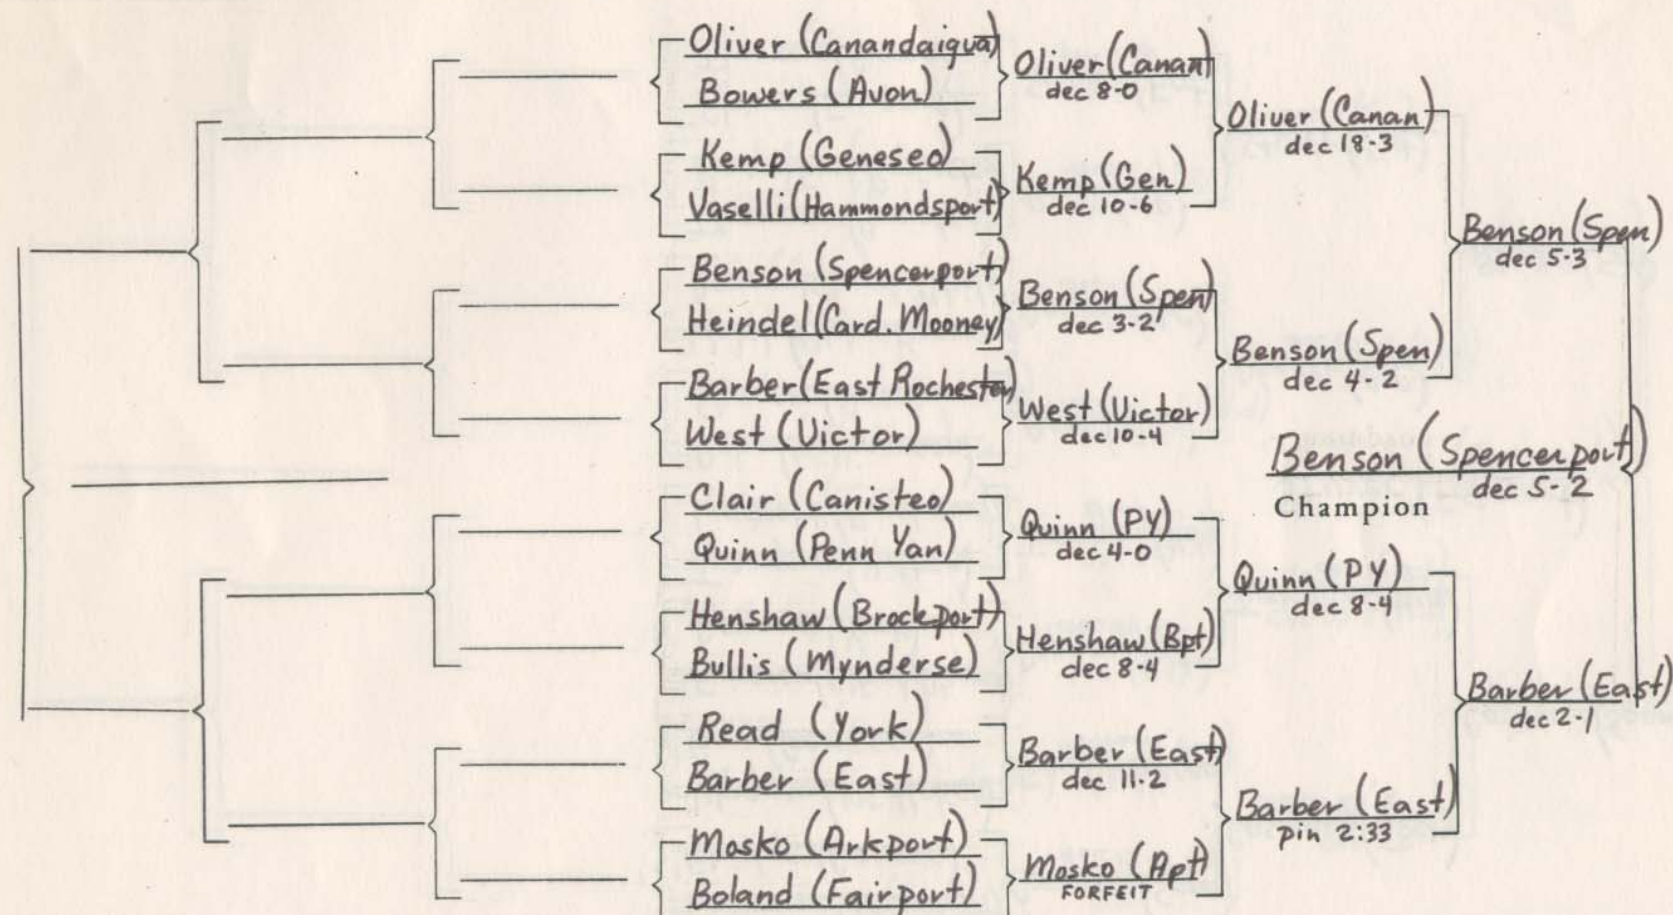 Oliver (Canandaigua)
Bowers (Avon)
Kemp (Geneseo)
Vaselli (Hammondsport)
Benson (Spencerport)
Heindel (Card. Mooney)
Barber (East Rochester)
West (Victor)
Clair (Canisteo)
Quinn (Penn Yan)
Henshaw (Brockport)
Bullis (Mynderse)
Read (York)
Barber (East)
Mosko (Arkport)
Boland (Fairport)
Oliver (Canan)
dec 8-0
Kemp (Gen)
dec 10-6
Benson (Spen)
dec 3-2
West (Victor)
dec 10-4
Quinn (PY)
dec 4-0
Henshaw (Bpt)
dec 8-4
Barber (East)
dec 11-2
Mosko (Apt)
FORFEIT
Oliver (Canan)
dec 18-3
Benson (Spen)
dec 4-2
Quinn (PY)
dec 8-4
Barber (East)
pin 2:33
Benson (Spen)
dec 5-3
Barber (East)
dec 2-1
Benson (Spencerport)
dec 5-2
Champion